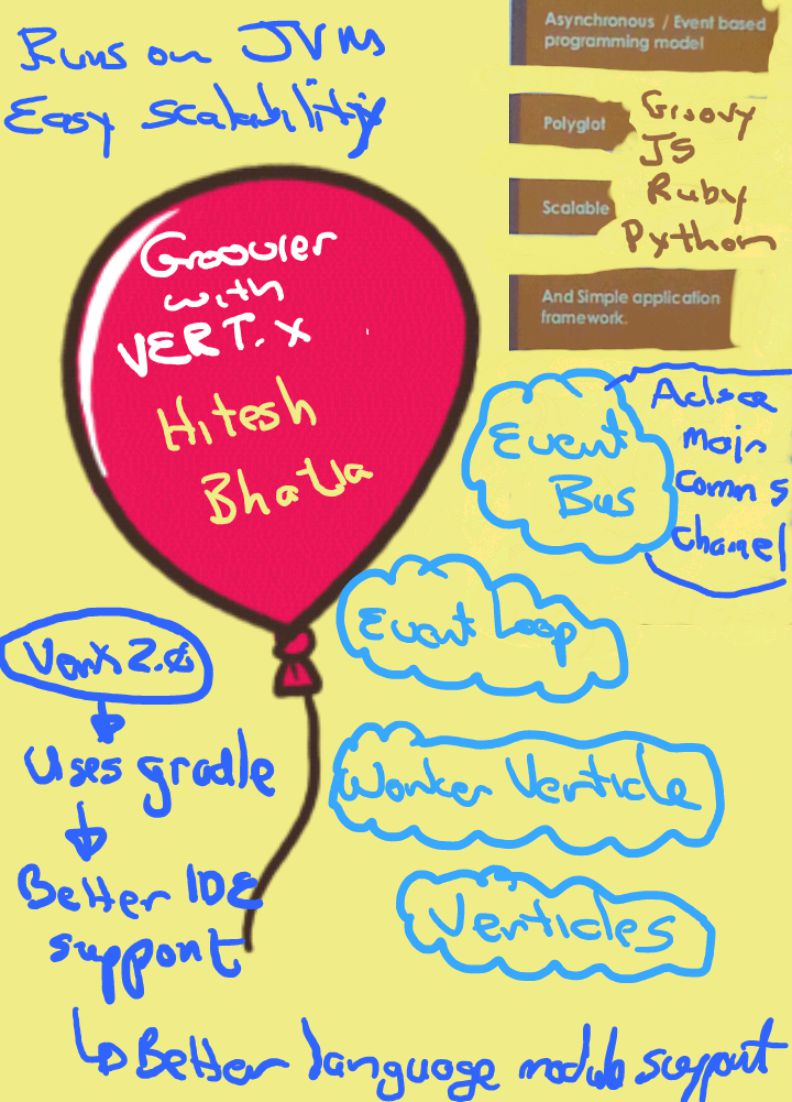 Runs on JVM
Easy Scalability
Asynchronous / Event based
programming model
Polyglot
Groovy
JS
Ruby
Python
Scalable
And Simple application
framework.
Groovier
with
VERT.X
Hitesh
Bhatia
Event
Bus
main
comms
channel
Event Loop
Worker Verticle
Verticles
Vertx 2.0
Uses gradle
Better IDE
support
Better language module support